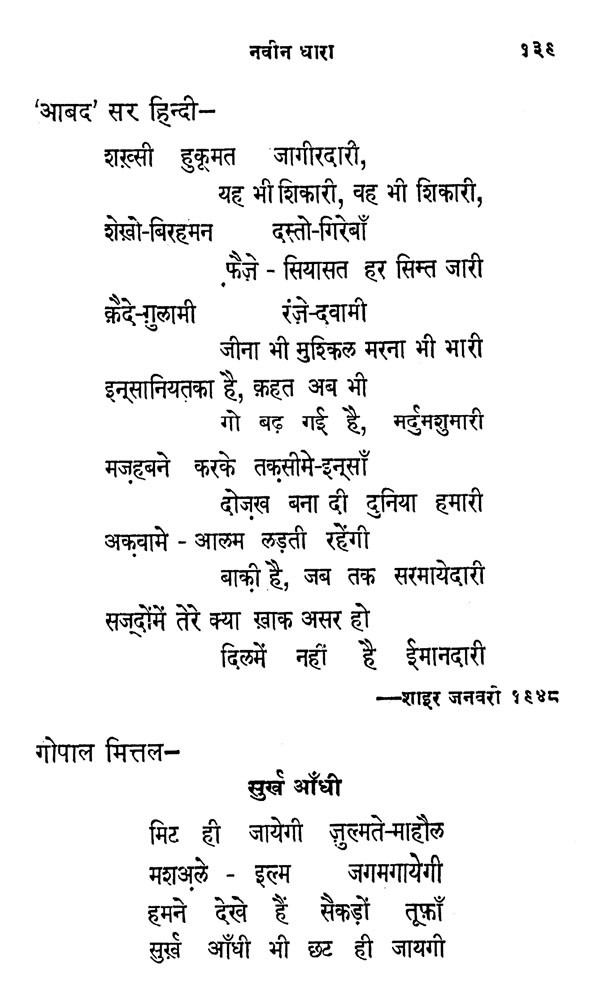 नवीन धारा १३९
'आबद' सर हिन्दी—
शख़्सी हुकूमत जागीरदारी,
यह भी शिकारी, वह भी शिकारी,
शेख़ो-बिरहमन दस्तो-गिरेबाँ
फ़ैज़े - सियासत हर सिम्त जारी
क़ैदे-ग़ुलामी रंज़े-दवामी
जीना भी मुश्किल मरना भी भारी
इन्सानियतका है, क़हत अब भी
गो बढ़ गई है, मर्दुमशुमारी
मज़हबने करके तक़सीमे-इन्साँ
दोज़ख़ बना दी दुनिया हमारी
अक़वामे - आलम लड़ती रहेंगी
बाक़ी है, जब तक सरमायेदारी
सज्दोंमें तेरे क्या ख़ाक असर हो
दिलमें नहीं है ईमानदारी
—शाइर जनवरी १९४८
गोपाल मित्तल—
सुर्ख़ आँधी
मिट ही जायेगी ज़ुल्मते-माहौल
मशअ़ले - इल्म जगमगायेगी
हमने देखे हैं सैकड़ों तूफ़ाँ
सुर्ख़ आँधी भी छट ही जायगी